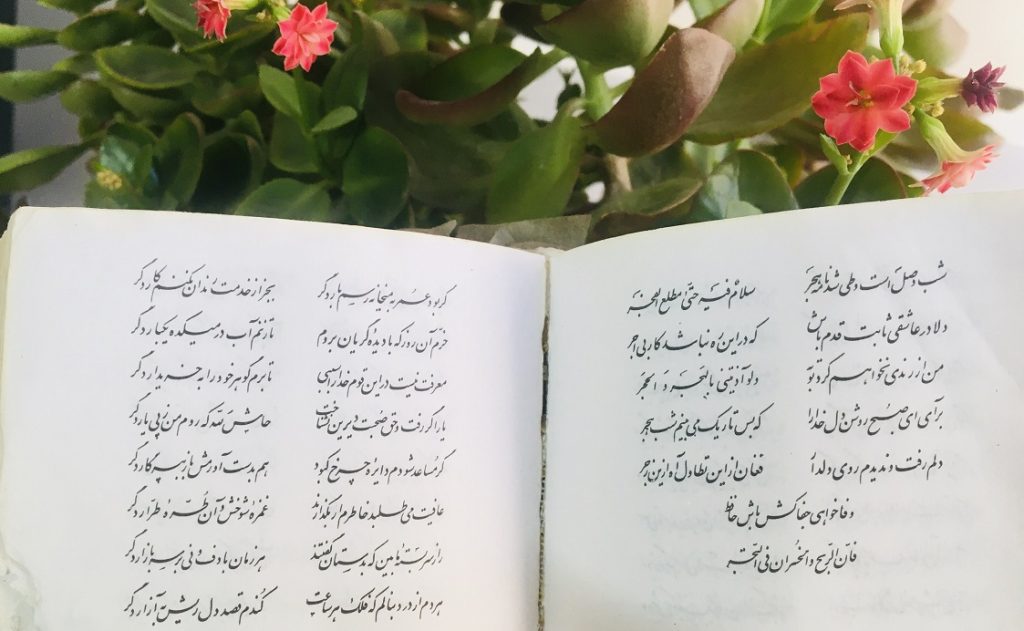 شب وصل است و طی شد نامهٔ هجر سلامٌ فیه حتّی مطلع الفجر
دلا در عاشقی ثابت قدم باش که در این ره نباشد کار بی اجر
من از رندی نخواهم کرد توبه ولو آذیتنی بالهجر و الحجر
برآی ای صبح روشن دل خدا را که بس تاریک می بینم شب هجر
دلم رفت و ندیدم روی دلدار فغان از این تطاول آه ازین زجر
وفا خواهی جفاکش باش حافظ
فانّ الرّبح و الخسران فی التّجر
گر بود عمر به میخانه رسم بار دگر بجز از خدمت رندان نکنم کار دگر
خرّم آن روز که با دیدهٔ گریان بروم تا زنم آب در میکده یکبار دگر
معرفت نیست در این قوم خدا را سببی تا برم گوهر خود را به خریدار دگر
یار اگر رفت و حق صحبت دیرین نشناخت حاش لله که روم من ز پی یار دگر
گر مساعد شودم دایرهٔ چرخ کبود هم بدست آورمش باز به پرگار دگر
عافیت می طلبد خاطرم ار بگذارند غمزهٔ شوخش و آن طُرّهٔ طرّار دگر
راز سربستهٔ ما بین که بدستان گفتند هر زمان با دف و نی بر سر بازار دگر
هر دم از درد بنالم که فلک هر ساعت کُندم قصد دل ریش به آزار دگر